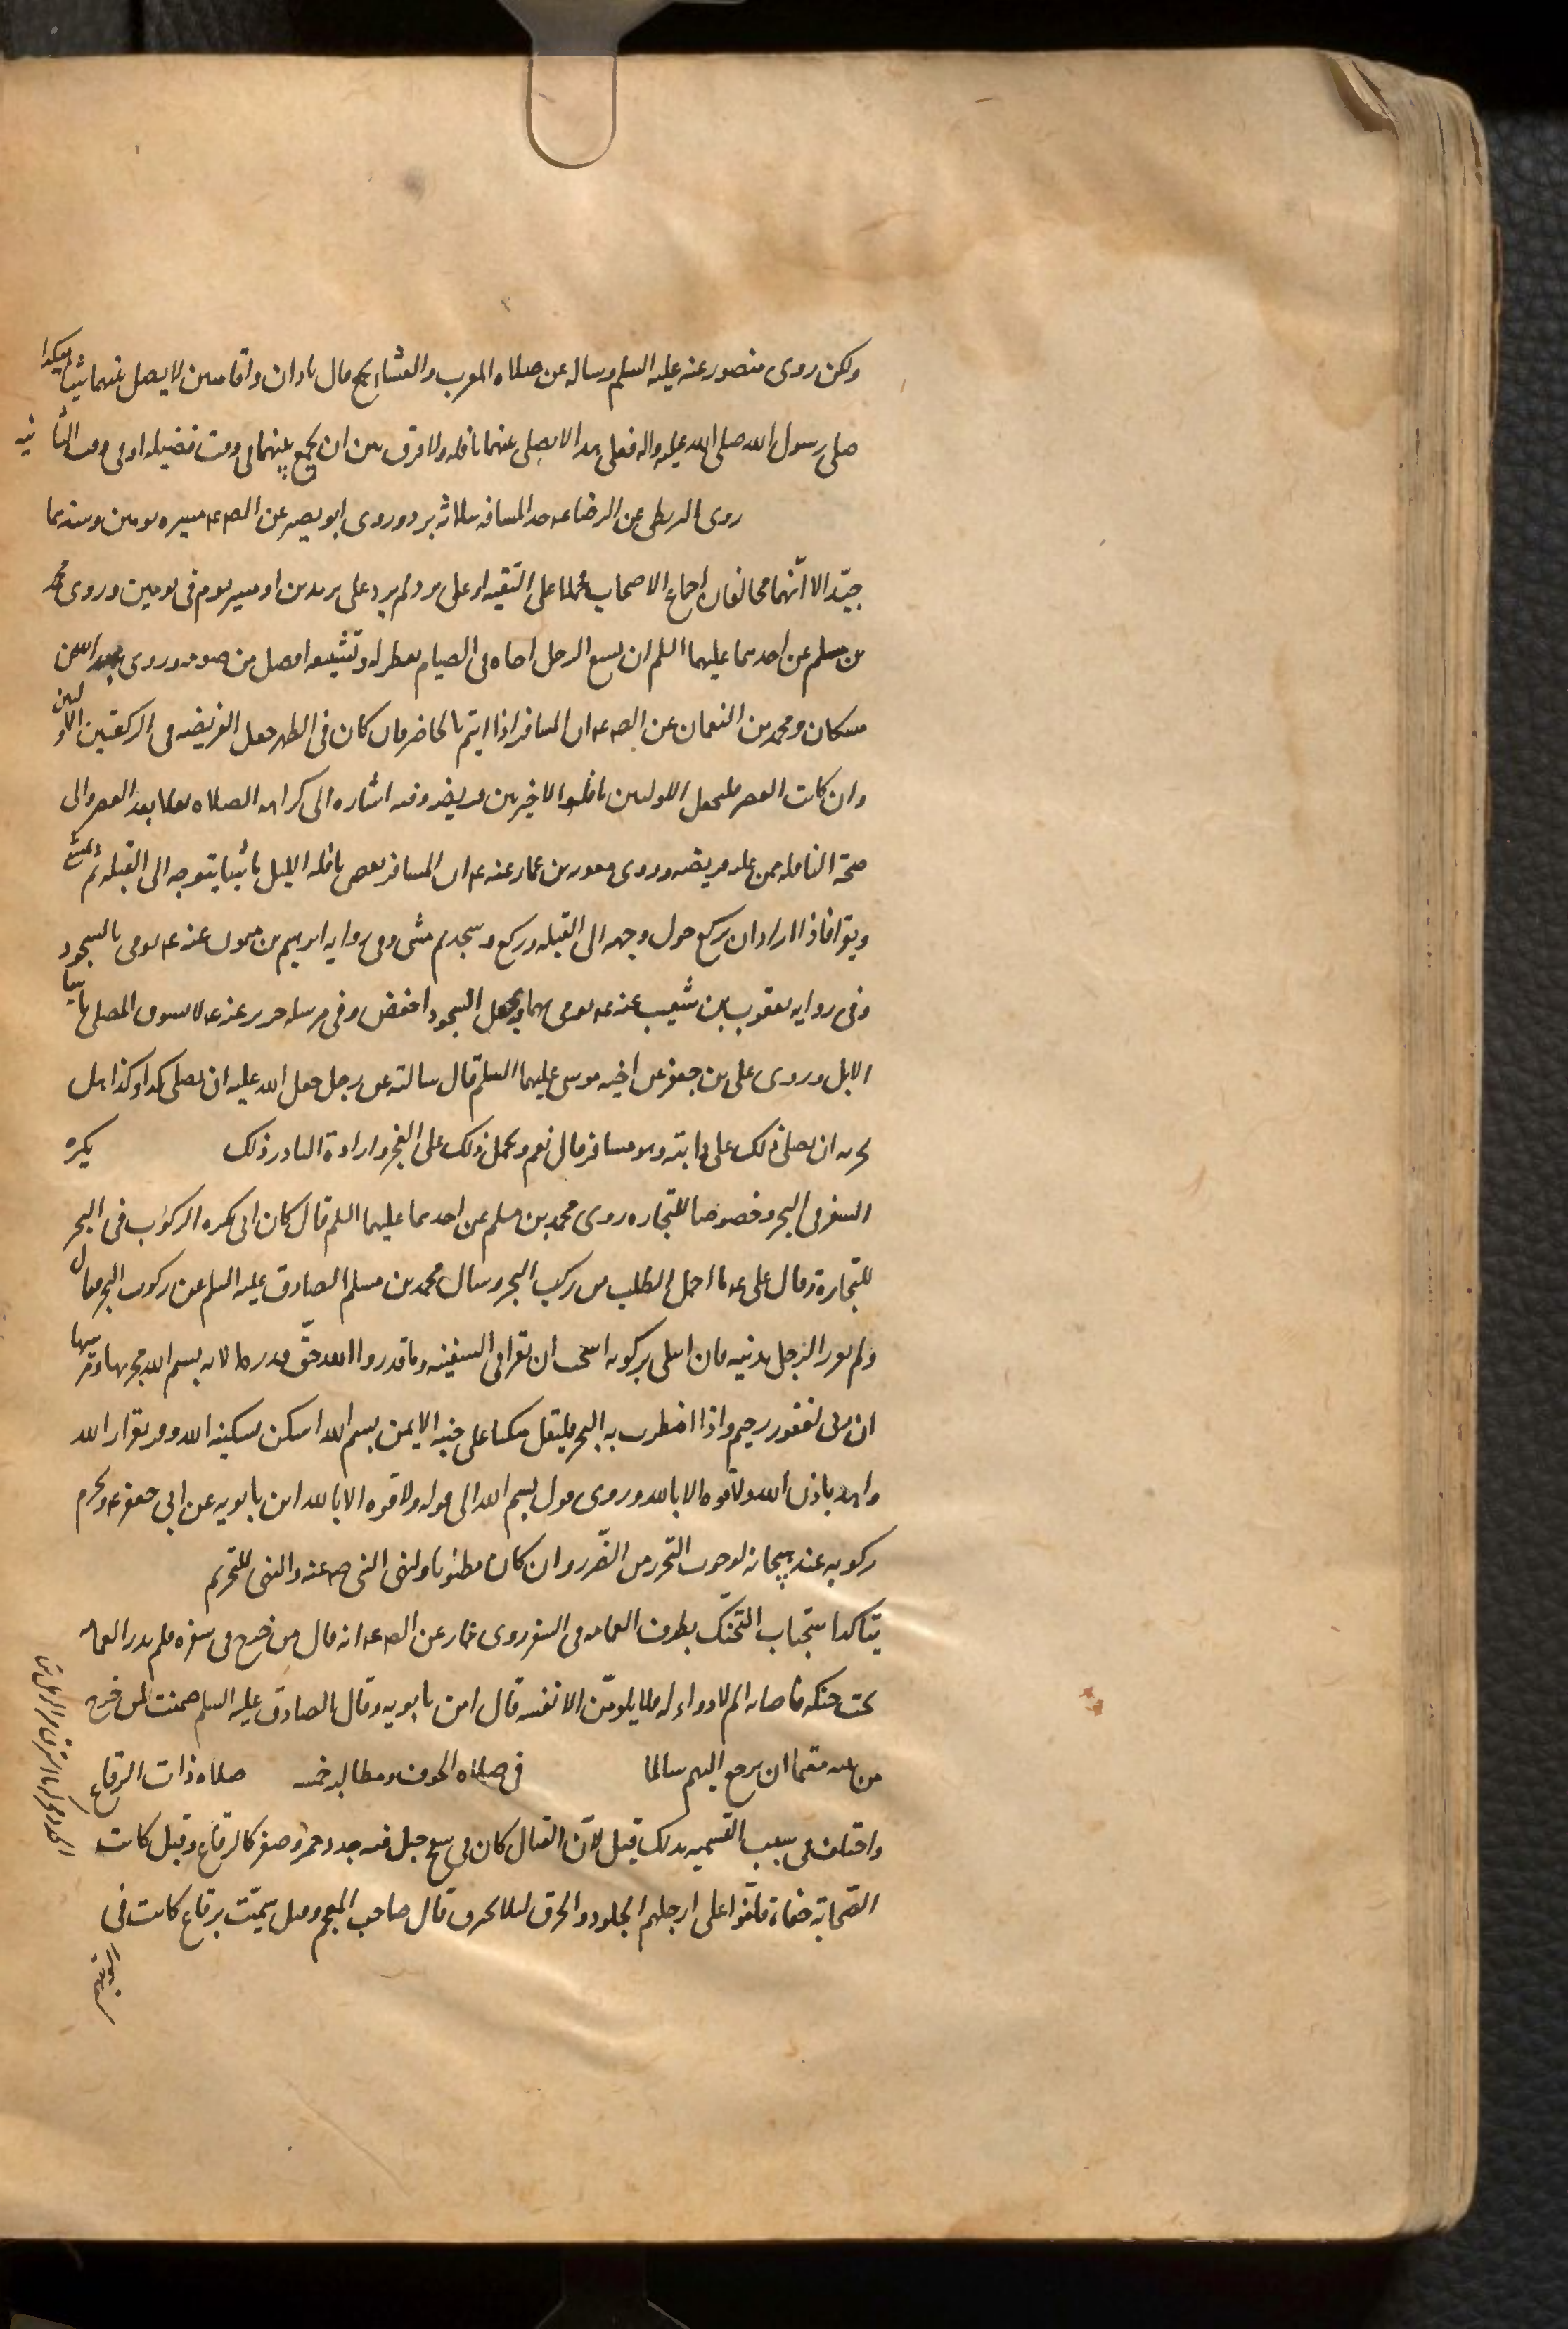 ولكن روى منصور عنه عليه السلم وساله عن صلاه المغرب والعشاء بجمع فقال باذان واقامتين لا يصل بينهما شيئا هكذا
صلى رسول الله صلى الله عليه واله فعلى هذا لا يصلى بينهما نافله ولا فرق بين ان يجمع بينهما فى وقت فضيله او فى وقت الثانيه
روى البزنطى عن الرضا عه حد المسافه ثلاثه برد وروى ابو بصير عن الصه عه مسيره يومين وسندهما
جيّد الا انّهما مخالفان لاجماع الاصحاب فحملا على التقيه او على مرد لم يرد على بريدين او مسير يوم فى يومين وروى محمد
بن مسلم عن احدهما عليهما السلم ان يسع الرجل اخاه فى الصيام يفطر له وتشييعه افضل من صومه وروى عبد الله بن
مسكان ومحمد بن النعمان عن الصه عه ان المسافر اذا ايتم بالحاضر فان كان فى الظهر جعل الفريضه فى الركعتين الاوليين
وان كانت العصر فليجعل الاوليين نافله والاخيرتين فريضه وفيه اشاره الى كراهه الصلاه نفلا بعد العصر والى
صحة النافله ممن عليه فريضه وروى معويه بن عمار عنه عه ان المسافر يصلى نافله الليل ماشيا يتوجه الى القبله ثم يمشى
ويقرا فاذا اراد ان يركع حول وجهه الى القبله وركع وسجد ثم مشى وفى روايه ابرهيم بن ميمون عنه عه يومى بالسجود
وفى روايه يعقوب بن شعيب عنه عه يومى بهما ويجعل السجود اخفض وفى مرسله حريز عنه عه لا يسوق المصلى ماشيا
الابل وروى على بن جعفر عن اخيه موسى عليهما السلم قال سالته عن رجل جعل لله عليه ان يصلى كذا وكذا هل
يجزيه ان يصلى ذلك على دابته وهو مسافر قال نعم ويحمل ذلك على العجز وارادة النادر ذلك يكره
السفر فى البحر وخصوصا للتجاره روى محمد بن مسلم عن احدهما عليهما السلم قال كان ابى يكره الركوب فى البحر
للتجارة وقال على عه ما اجمل الطلب من ركب البحر وسال محمد بن مسلم الصادق عليه السلم عن ركوب البحر فقال
ولم يغرر الرجل بدينه فان ابتلى بركوبه استحب ان يقرا فى السفينه وما قدروا الله حقّ قدره الايه بسم الله مجريها ومرسيها
ان ربى لغفور رحيم واذا اضطرب به البحر فليقل متكئا على جنبه الايمن بسم الله اسكن بسكينه الله وقر بقرار الله
واهدا باذن الله ولا قوه الا بالله وروى قول بسم الله الى قوله ولا قوه الا بالله ابن بابويه عن ابى جعفر عه ويحرم
ركوبه عند هيجانه لوجوب التحرز من الضّرر وان كان مظنونا ولنهى النبى ص عنه والنهى للتحريم
يتاكد استحباب التحنّك بطرف العمامه فى السفر روى عمار عن الصه عه انه قال من خرج فى سفره فلم يدر العمامه
تحت حنكه فاصابه الم لا دواء له فلا يلومنّ الا نفسه قال ابن بابويه وقال الصادق عليه السلم ضمنت لمن خرج
من بيته معتما ان يرجع اليهم سالما في صلاه الخوف ومطالبه خمسه صلاه ذات الرقاع
واختلف فى سبب التسميه بذلك قيل لانّ القتال كان فى سفح جبل فيه جدد حمر وصفر كالرقاع وقيل كانت
الصّحابة حفاة فلفّوا على ارجلهم الجلود والخرق لئلا تحرق قال صاحب المعجم وقيل سمّيت برقاع كانت فى
الويتهم